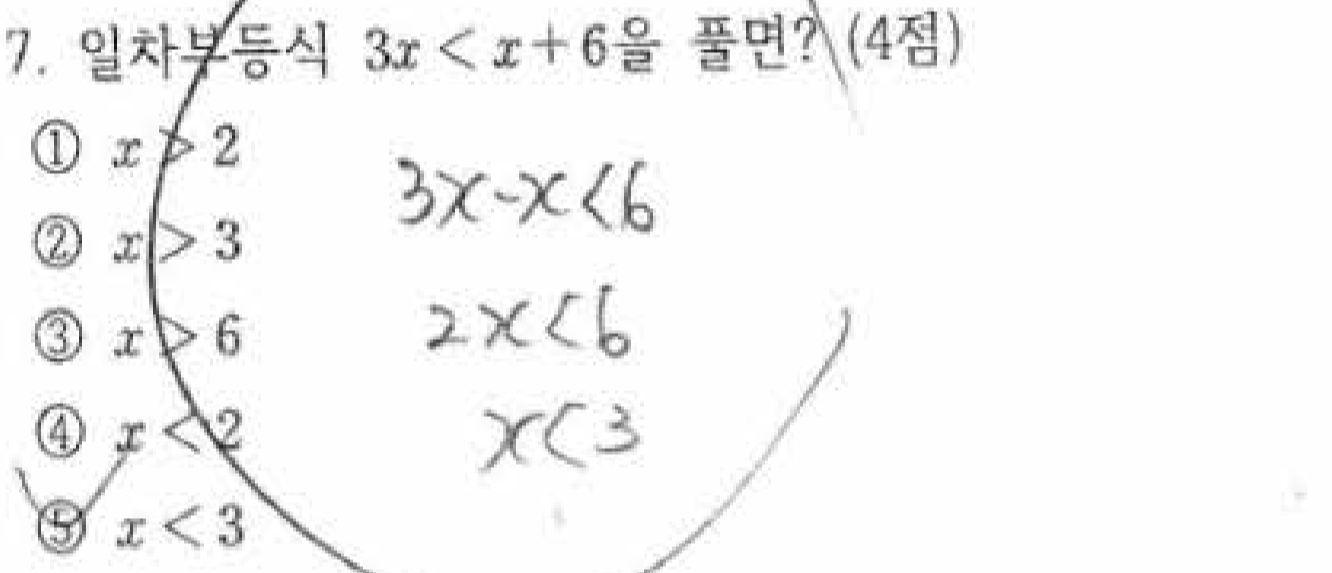 7. 일차부등식 3x < x+6을 풀면? (4점)
① x > 2
② x > 3
③ x > 6
④ x < 2
⑤ x < 3
3x-x<6
2x<6
x<3